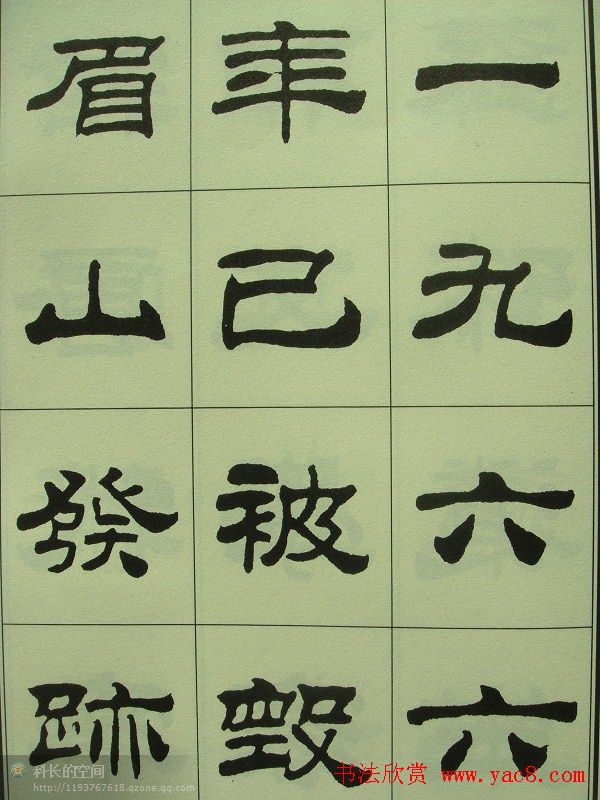 一九六六
年已被毀
眉山發跡
科长的空间
http://1193767618.qzone.qq.com
书法欣赏 www.yac8.com